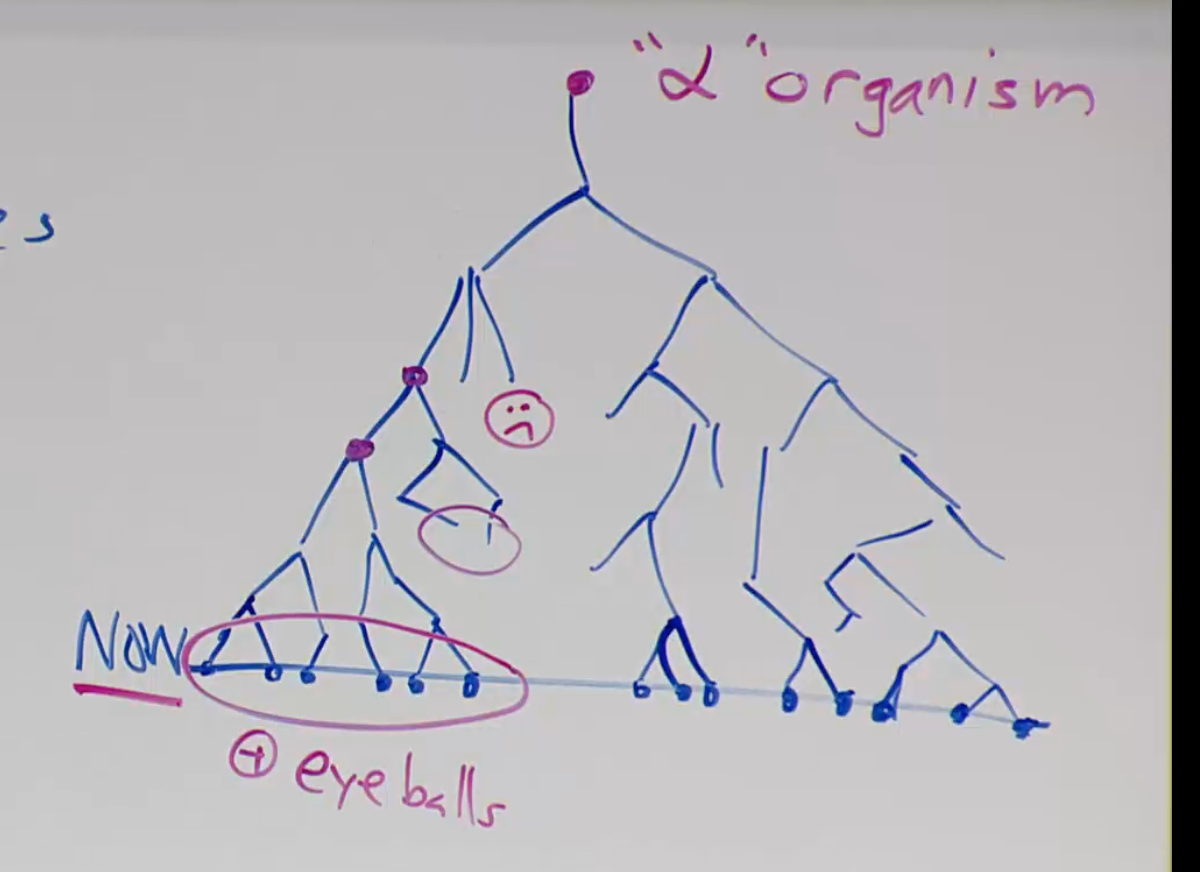 "α" organism
es
NOW
⊕ eyeballs